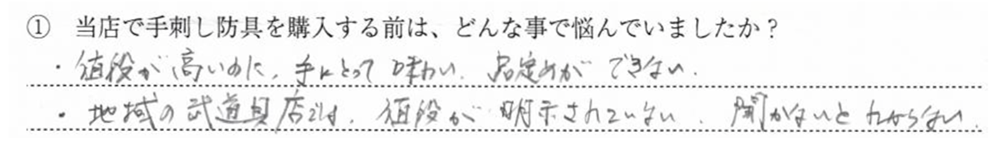 ① 当店で手刺し防具を購入する前は、どんな事で悩んでいましたか？
・値段が高いのに、手にとって味わい、品定めができない。
・地域の武道具店では、値段が明示されていない。聞かないとわからない。